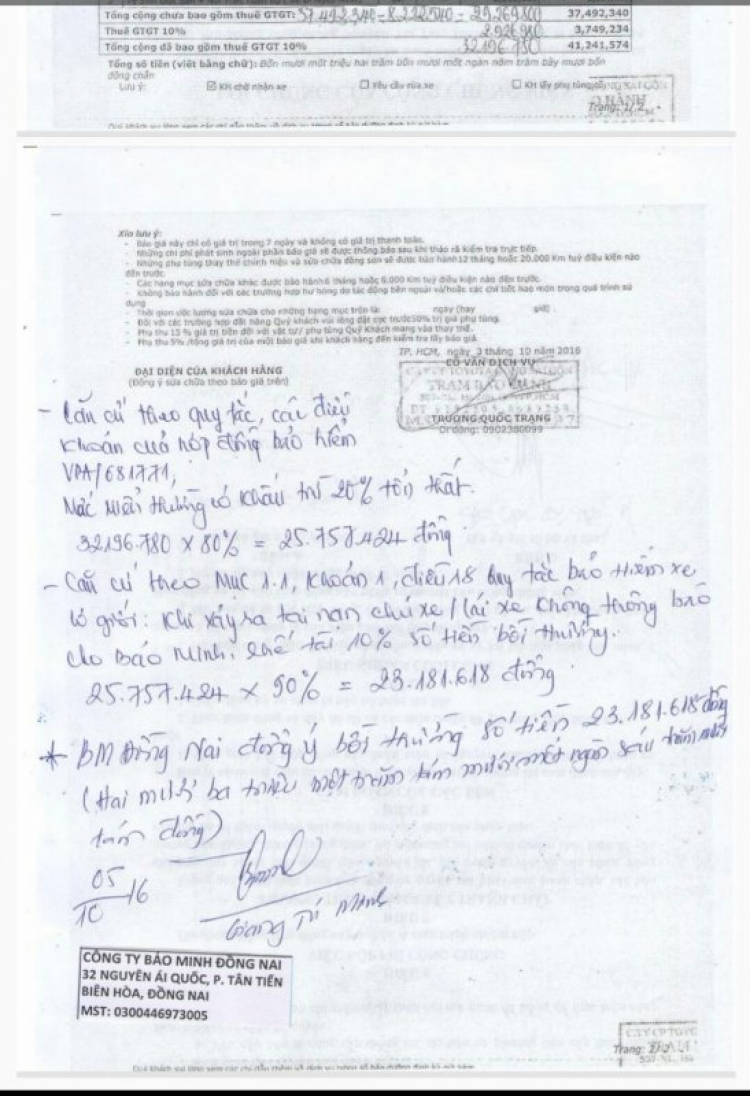 Tổng cộng chưa bao gồm thuế GTGT: 37.492.340 - 8.222.540 = 29.269.800 37,492,340
Thuế GTGT 10% 2.926.980 3,749,234
Tổng cộng đã bao gồm thuế GTGT 10% 32.196.780 41,241,574
Tổng số tiền (viết bằng chữ): Bốn mươi một triệu hai trăm bốn mươi một ngàn năm trăm bảy mươi bốn
đồng chẵn
Lưu ý: ☑ KH chờ nhận xe ☐ Yêu cầu rửa xe ☐ KH lấy phụ tùng
Trang: 1/2
Xin lưu ý:
- Báo giá này chỉ có giá trị trong 7 ngày và không có giá trị thanh toán.
- Những chi phí phát sinh ngoài phần báo giá sẽ được thông báo sau khi tháo rã kiểm tra trực tiếp.
- Những phụ tùng thay thế chính hiệu và sửa chữa đồng sơn sẽ được bảo hành 12 tháng hoặc 20.000 Km tuỳ điều kiện nào
đến trước.
- Các hạng mục sửa chữa khác được bảo hành 6 tháng hoặc 6.000 Km tuỳ điều kiện nào đến trước.
- Không bảo hành đối với các trường hợp hư hỏng do tác động bên ngoài và/hoặc các chi tiết hao mòn trong quá trình sử
dụng
- Thời gian việc lượng sửa chữa cho những hạng mục trên là: ngày (hay giờ).
- Đối với các trường hợp đặt hàng Quý khách vui lòng đặt cọc trước 50% trị giá phụ tùng.
- Phụ thu 15 % giá trị tiền đối với vật tư/ phụ tùng Quý Khách mang vào thay thế.
- Phụ thu 5% /tổng giá trị của một báo giá khi khách hàng đến kiểm tra lấy báo giá.
TP. HCM, ngày 3 tháng 10 năm 2016
ĐẠI DIỆN CỦA KHÁCH HÀNG CỐ VẤN DỊCH VỤ
(Đồng ý sửa chữa theo báo giá trên)
TRẠM BẢO HÀNH
TRƯƠNG QUỐC TRANG
Di động: 0902380099
- Căn cứ theo quy tắc, các điều
khoản của hợp đồng bảo hiểm
VPA/681771,
Mức miễn thường có khấu trừ 20% tổn thất.
32.196.780 x 80% = 25.757.424 đồng
- Căn cứ theo Mục 1.1, khoản 1, điều 18 quy tắc bảo hiểm xe
cơ giới: Khi xảy ra tai nạn chủ xe / lái xe không thông báo
cho Bảo Minh: chế tài 10% số tiền bồi thường.
25.757.424 x 90% = 23.181.618 đồng
* BM Đồng Nai đồng ý bồi thường số tiền 23.181.618 đồng
(Hai mươi ba triệu một trăm tám mươi một ngàn sáu trăm mười
tám đồng)
05/10 16
Giang Trí Minh
CÔNG TY BẢO MINH ĐỒNG NAI
32 NGUYỄN ÁI QUỐC, P. TÂN TIẾN
BIÊN HÒA, ĐỒNG NAI
MST: 0300446973005
Trang: 2/2